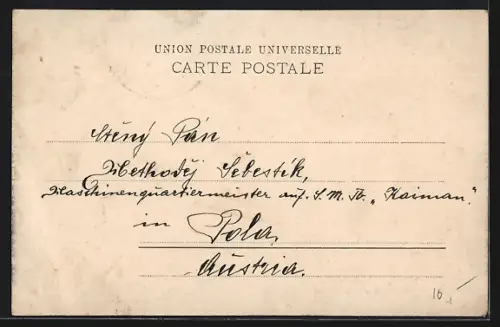 UNION POSTALE UNIVERSELLE
CARTE POSTALE
Ctěný Pán
Methoděj Šebestík,
Maschinenquartiermeister auf S. M. Tb. „Kaiman"
in
Pola,
Austria.
10